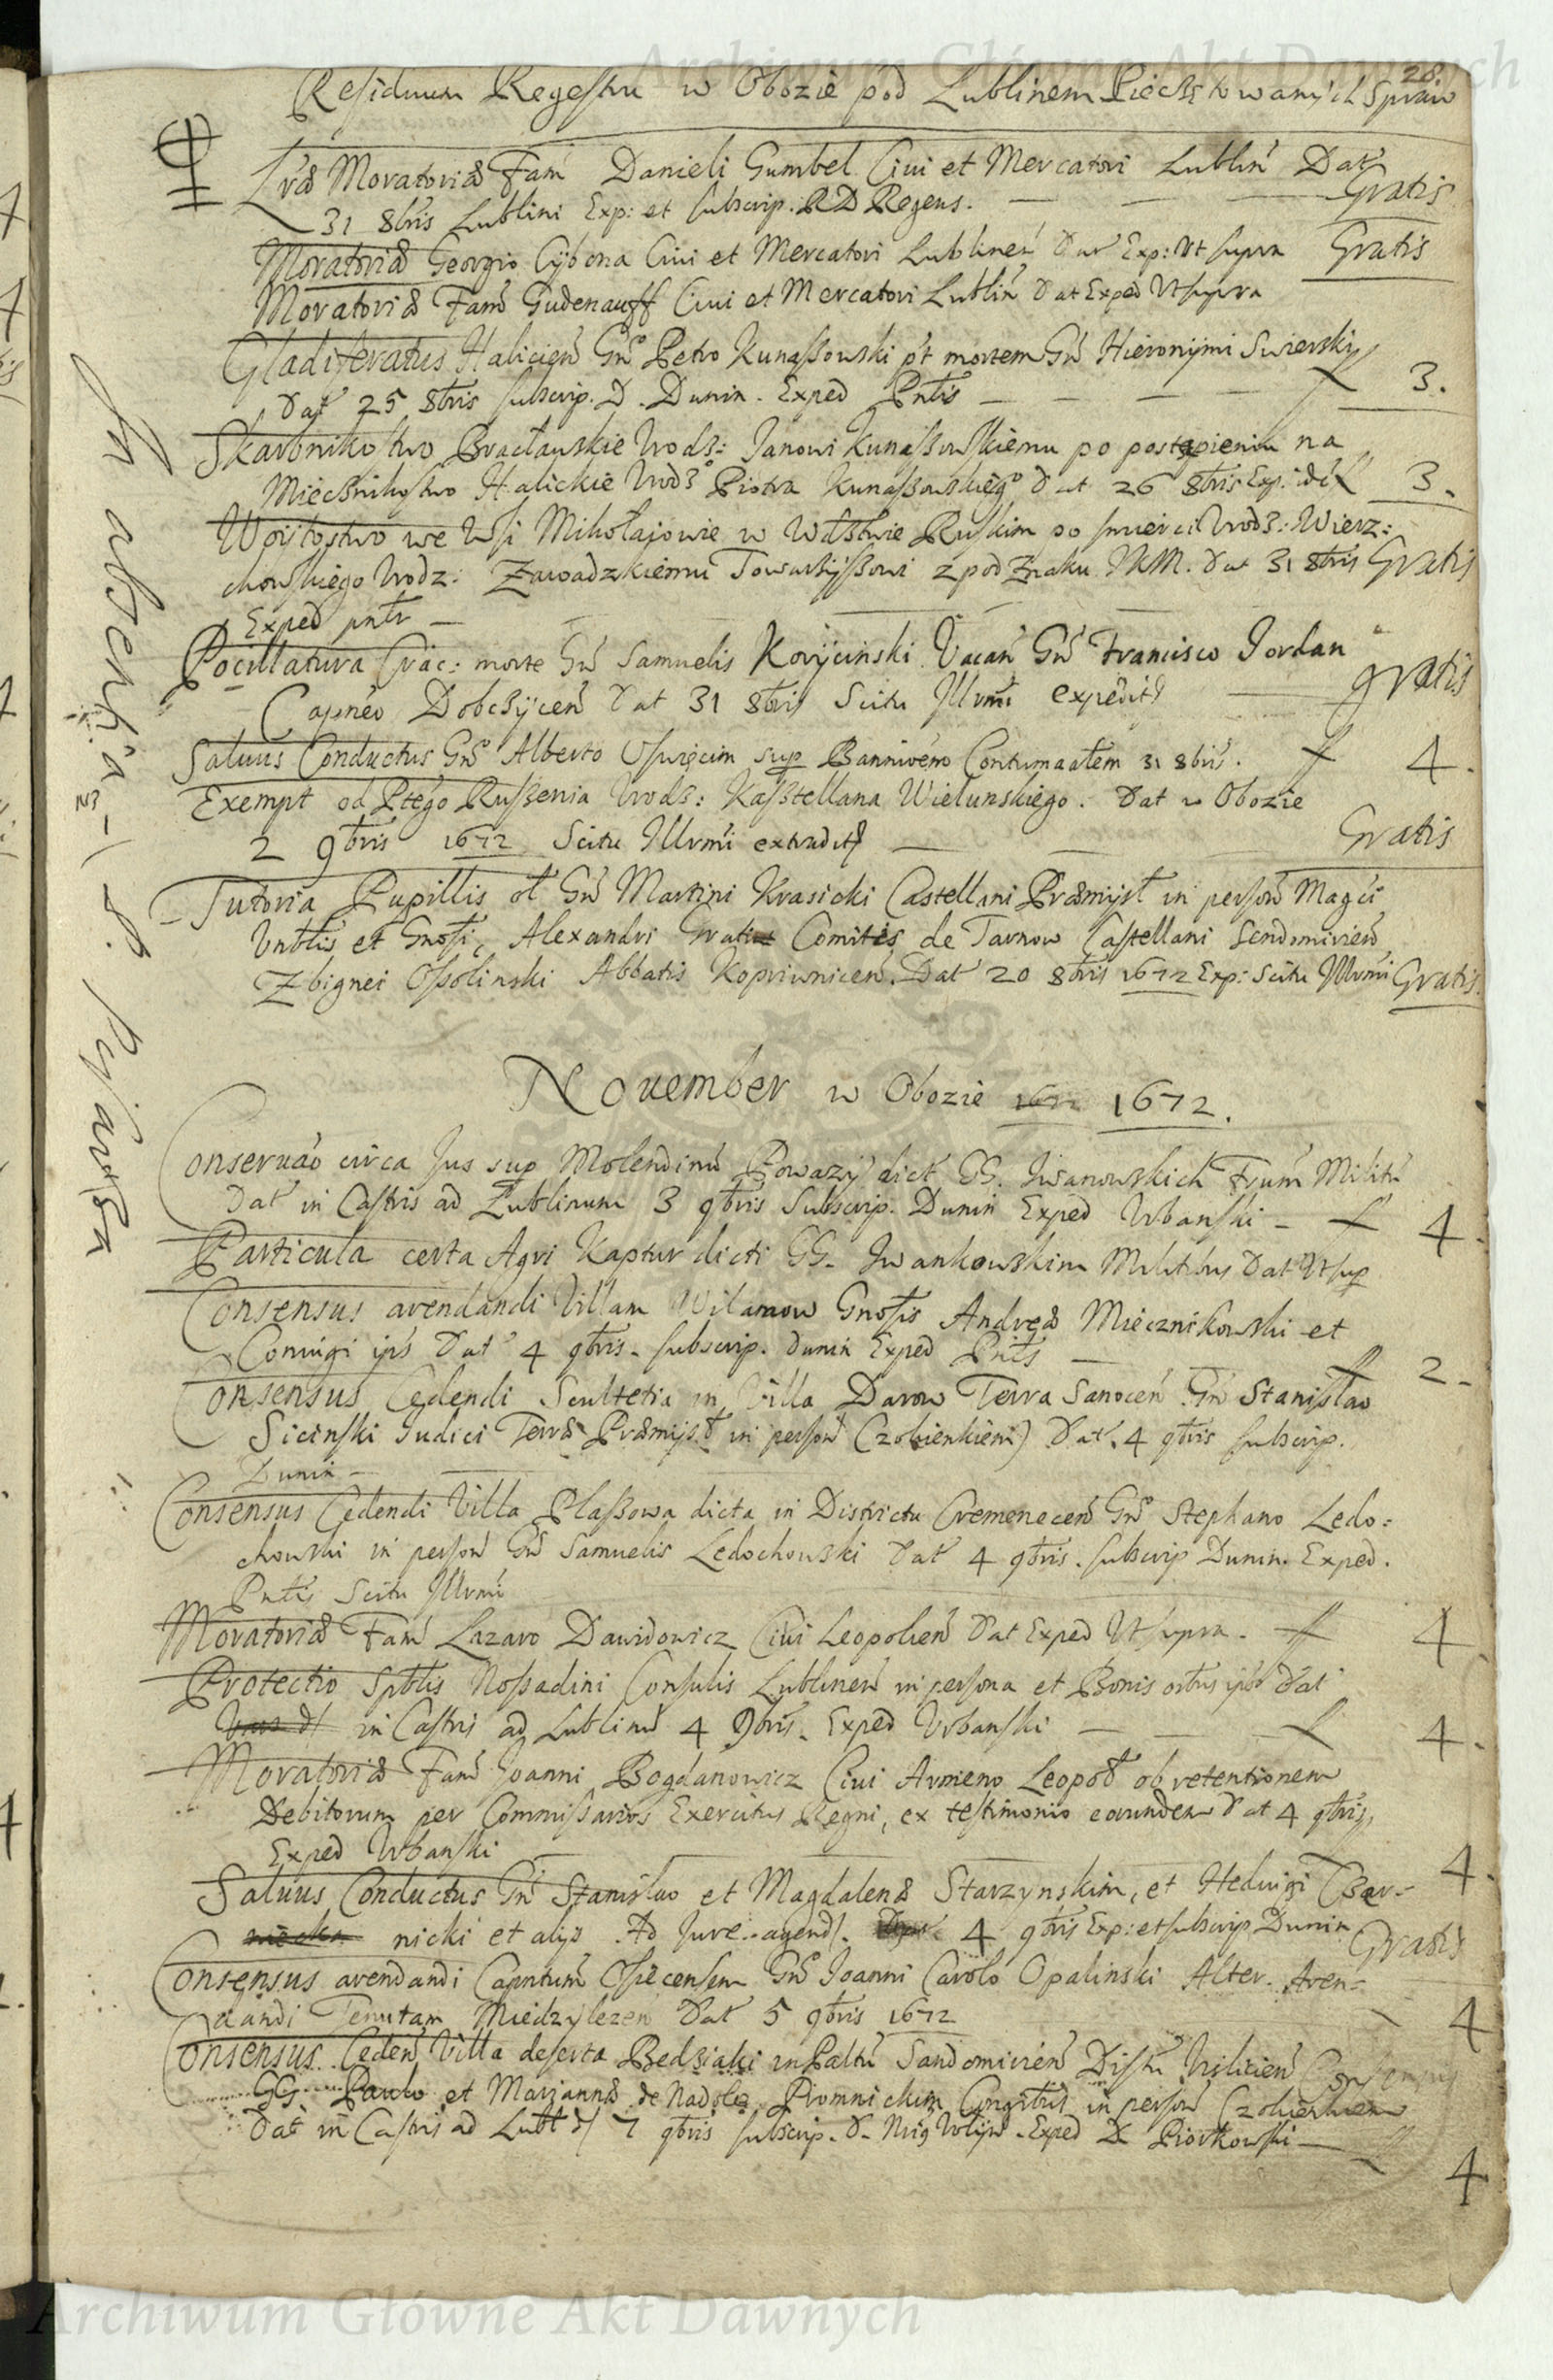 Archiwum Główne Akt Dawnych
28.
Residuum Regestru w Obozie pod Lublinem Pieczętowanych Spraw
Lrã Moratoriã Fam Danieli Gumbel Ciui et Mercatori Lublin Dat
31 8bris Lublini Exp: et subscrip. RD Regens. — — — Gratis
Moratoriã Georgio Cybona Ciui et Mercatori Lublinen Dat Exp: Vt supra Gratis
Moratoriã Fam Gudenauff Ciui et Mercatori Lublin Dat Exped Vt supra
Gladiferatus Halicien Gnõ Petro Kunaszowski pt mortem Gn Hieronymi Swierski
Dat 25 8bris subscrip. D. Dunin. Exped Pntis — — — 3.
Skarbnikostwo Bracławskie Urodz: Janowi Kunaszowskiemu po postąpieniu na
Miecznikostwo Halickie Urodzo Piotra Kunaszowskiego Dat 26 8bris Exp. id 3.
Woytostwo we Wsi Mikołajowie w Wdztwie Ruskim po smierci Urodz: Wierz:
chowskiego Urodz: Zawadzkiemu Towarzyszowi z pod Znaku JKM. Dat 31 8bris Gratis
Exped pntis —
Pocillatura Crac: morte Gn Samuelis Korycinski Vacan Gn Francisco Jordan
Capneo Dobczycen Dat 31 8bris Scitu Illrmi expedit gratis
Saluus Conductus Gnõ Alberto Oswięcim sup Bannioem Contumaalem 31 8bris. 4.
Exempt od Pteo Ruszenia Urodz: Kasztellana Wielunskiego. Dat w Obozie
2 9bris 1672 Scitu Illrmi extradit — — Gratis
Tutoria Pupillis ol Gn Martini Krasicki Castellani Præmysl in person Magci
Vnblis et Gnosi, Alexandri Comitis de Tarnow Castellani Sendomirien
Zbignei Ossolinski Abbatis Kopriwnicen. Dat 20 8bris 1672 Exp: Scitu Illrmi Gratis
In absentia S. Pisarza
November w Obozie 1672 1672.
Conseruao circa Jus sup Molendinu Powazy dict GG. Iwanowskich Frum Milit
Dat in Castris ad Lublinum 3 9bris Subscrip. Dunin Exped Urbanski — 4.
Particula certa Agri Kaptur dicti GG. Iwankowskim Militibus Dat Vt sup
Consensus arendandi Villam Wilamow Gnosis Andreæ Miecznikowski et
Coniugi ips Dat 4 9bris. subscrip. Dunin Exped Pntis — 2.
Consensus Cedendi Scultetia in Villa Darow Terra Sanocen Gn Stanislao
Sicinski Iudici Terræ Præmysl in person Czobienkiem) Dat. 4 9bris subscrip.
Dunin —
Consensus Cedendi Villa Plaszowa dicta in Districtu Cremenecen Gnõ Stephano Ledo:
chowski in person Gn Samuelis Ledochowski Dat 4 9bris. subscrip Dunin. Exped.
Pntis Scitu Illrmi
Moratoriã Fam Lazaro Dawidowicz Ciui Leopolien Dat Exped Vt supra. 4
Protectio Sptlis Nossadini Consulis Lublinen in persona et Bonis ortus ips Dat
in Castris ad Lublinu 4 9bris. Exped Urbanski — — 4.
Moratoriã Fam Joanni Bogdanowicz Ciui Armeno Leopol ob retentionem
Debitorum per Commissarios Exercitus Regni, ex testimonio eorundem Dat 4 9bris,
Exped Urbanski 4.
Saluus Conductus Gn Stanislao et Magdalenæ Starzynskim, et Heduigi Czar-
nicki et alys. Ad Jure agend. 4 9bris Exp: et subscrip Dunin Gratis
Consensus arendandi Capntum Osiecensem Gnõ Joanni Carolo Opalinski Alter. Aren-
dandi Tenutam Miedzylezen Dat 5 9bris 1672 4
Consensus Ceden Villa deserta Bedziaki in Paltu Sandomirien Distu Wilicien Consensus
GG Paulo et Mariannæ de Nadole Piomnickim Coniugibus in person
Dat in Castris ad Lubl d 7 9bris subscrip. D. Exped D Piotrkowski — 4
Archiwum Główne Akt Dawnych